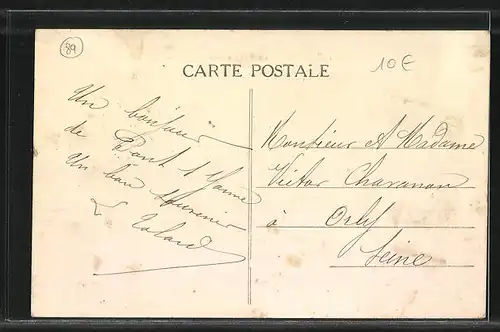 89
10€
CARTE POSTALE
Un bonjour
de Pont s/ Yonne
Un bon souvenir
Monsieur et Madame
Victor Chavanon
à Orly
Seine